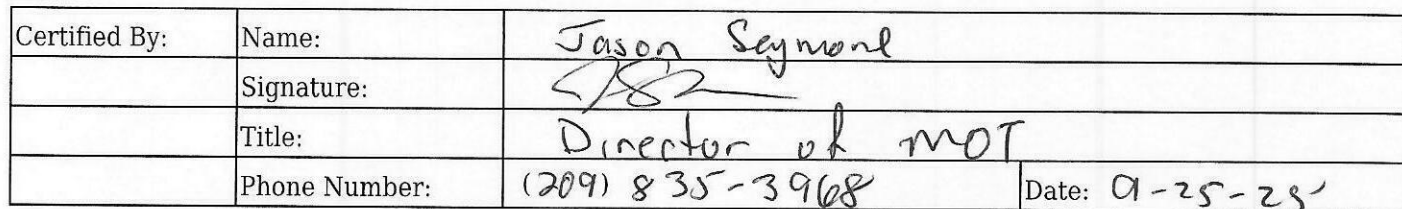 Certified By: Name: Jason Seymone
Signature:
Title: Director of MOT
Phone Number: (209) 835-3968 Date: 9-25-25